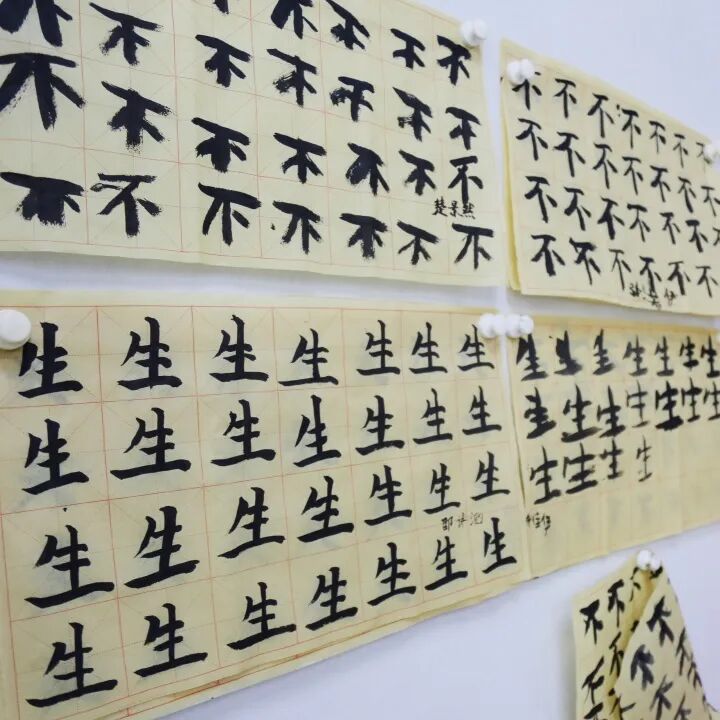 不不不不
不不不不不不不
不不不不不不不
不不不不不不不
楚景然
不不不不不不不
不不不不不不不
不不不不不不不
不不不不不不不
生生生生生生生
生生生生生生生
生生生生生生生
生生生生生生生
生生生生生生生
生生生生生生生
生生生生
不不